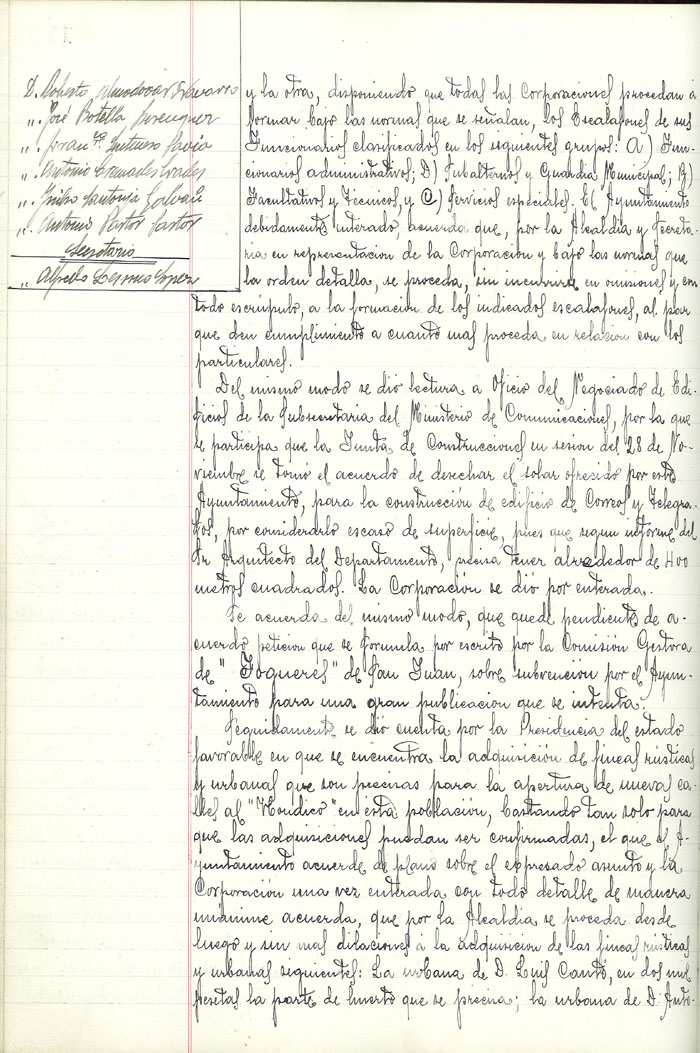 D. Roberto Almodovar Navarro
„. José Botella Berenguer
„. Antonio Granados
„. Antonio Pastor Pastor
Secretario
„. Alfredo Lopez
y la otra, disponiendo que todas las Corporaciones procedan a
formar bajo las normas que se señalan, los Escalafones de sus
Funcionarios clasificados en los siguientes grupos: A) Fun-
cionarios administrativos; D) Subalternos y Guardia Municipal; B)
Facultativos y Tecnicos, y C) Servicios especiales. El Ayuntamiento
debidamente enterado, acuerda que, por la Alcaldía y Secreta-
ria en representacion de la Corporacion y bajo las normas que
la orden detalla, se proceda, sin incurrir en omisiones y con
todo escrúpulo, a la formacion de los indicados escalafones, al par
que den cumplimiento a cuanto mas proceda en relacion con los
particulares.
Del mismo modo se dió lectura a Oficio del Negociado de Edi-
ficios de la Subsecretaria del Ministerio de Comunicaciones, por la que
se participa que la Junta de Construcciones en sesion del 28 de No-
viembre se tomó el acuerdo de desechar el solar ofrecido por este
Ayuntamiento, para la construcción de edificio de Correos y Telegra-
fos, por considerarlo escaso de superficie, pues que segun informe del
Sr Arquitecto del Departamento, precisa tener alrededor de 400
metros cuadrados. La Corporación se dió por enterada.
Se acuerda del mismo modo, que quede pendiente de a-
cuerdo peticion que se formula por escrito por la Comisión Gestora
de "Fogueres" de San Juan, sobre subvención por el Ayun-
tamiento para una gran publicacion que se intenta.
Seguidamente se dió cuenta por la Presidencia del estado
favorable en que se encuentra la adquisición de fincas rústicas
y urbanas que son precisas para la apertura de nuevas ca-
lles al "Fondico" en esta población, bastando tan solo para
que las adquisiciones puedan ser confirmadas, el que el A-
yuntamiento acuerde de plano sobre el expresado asunto y la
Corporacion una vez enterada con todo detalle de manera
unánime acuerda, que por la Alcaldia se proceda desde
luego y sin mas dilaciones á la adquisicion de las fincas rústicas
y urbanas siguientes: La urbana de D. Luis Cantó, en dos mil
pesetas la parte de huerto que se precisa; la urbana de D. Anto-